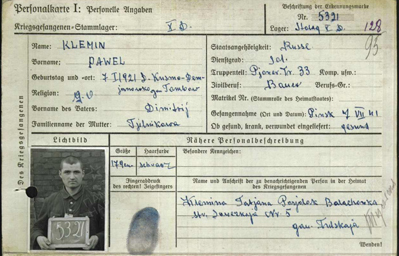 Personalkarte I: Personelle Angaben
Beschriftung der Erkennungsmarke
Nr. 5321
Kriegsgefangenen-Stammlager: X D.
Lager: Stalag X D. 128
Des Kriegsgefangenen
Name: KLEMIN
Vorname: PAWEL
Geburtstag und -ort: 7.I.1921 D-Kusmo-Dem-
Tambow
Religion:
Vorname des Vaters: Dimitrij
Familienname der Mutter:
Staatsangehörigkeit: Russe
93
Dienstgrad: Sol.
Truppenteil: 33 Komp. usw.:
Zivilberuf: Bauer Berufs-Gr.:
Matrikel Nr. (Stammrolle des Heimatstaates):
Gefangennahme (Ort und Datum): Pinsk 7 VII 41
Ob gesund, krank, verwundet eingeliefert: gesund
Lichtbild
Nähere Personalbeschreibung
Größe
Haarfarbe
Besondere Kennzeichen:
schwarz
Fingerabdruck
des rechten! Zeigefingers
Name und Anschrift der zu benachrichtigenden Person in der Heimat
des Kriegsgefangenen
Klemina Tatjana
Nr 5
5321